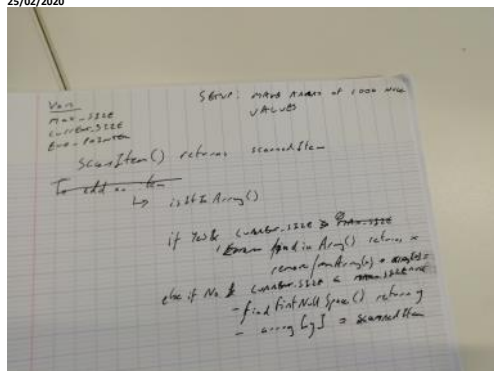 25/02/2020
Var
Max_SIZE
CURRENT_SIZE
END_POINTER
SETUP: MAKE ARRAY of 1000 NULL
VALUES
ScanItem() returns scannedItem
To add an item
↳ isItInArray()
if Yes & CURRENT_SIZE > 0 MAX_SIZE
findInArray() returns x
removeFromArray(x)
else if No & CURRENT_SIZE <
- findFirstNullSpace() return y
- array[y] = scannedItem